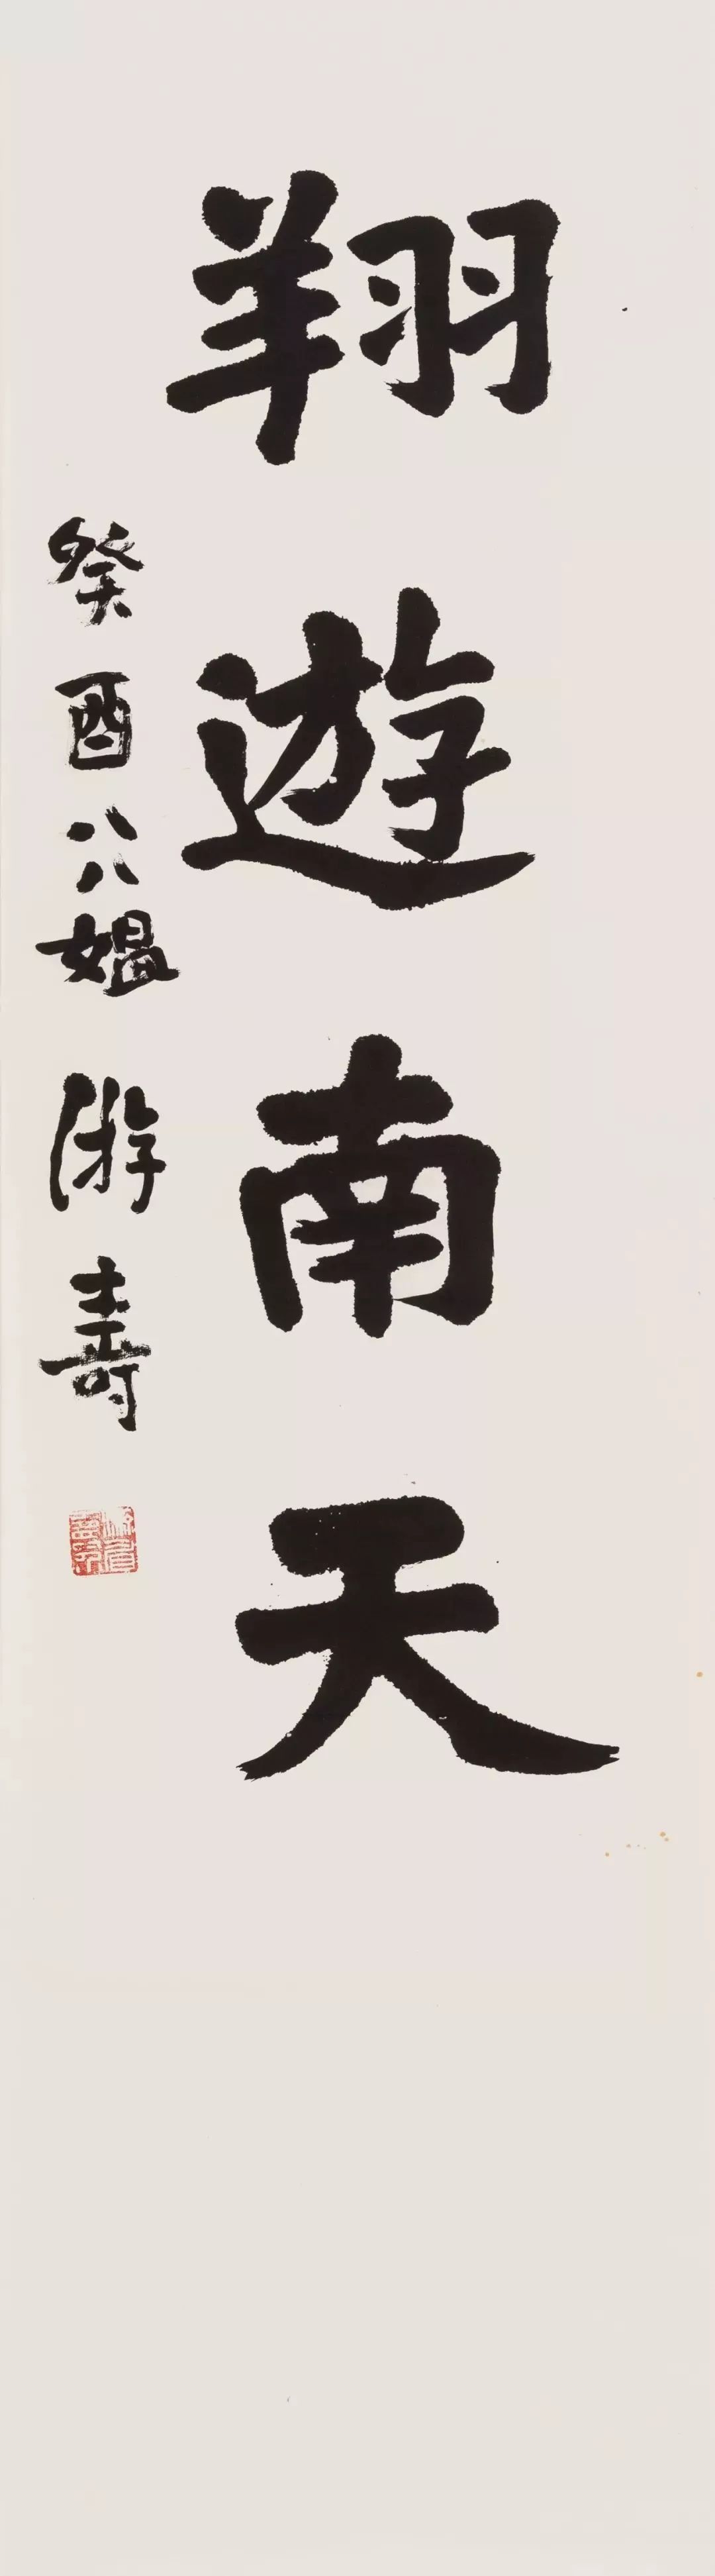 翔遊南天
癸酉八八媪游壽